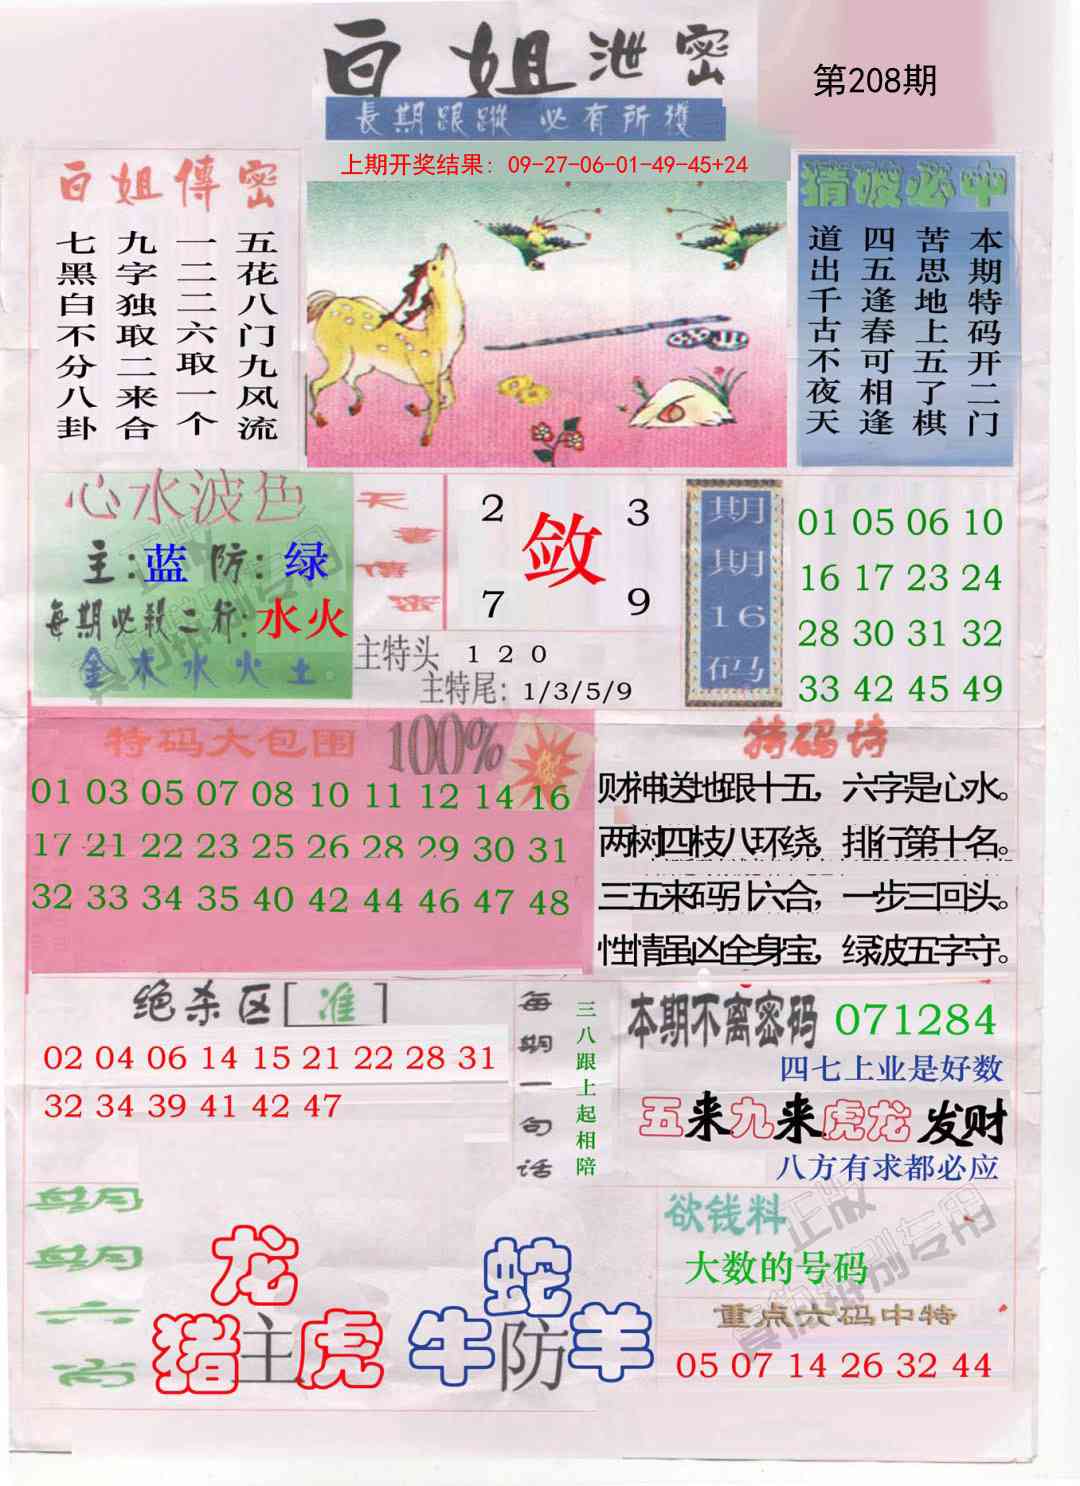 百姐泄密
第208期
長期跟蹤 必有所獲
上期开奖结果：09-27-06-01-49-45+24
百姐傳密
五花八门九风流
一二二六取一个
九字独取二来合
七黑白不分八卦
猜破必中
本期特码开二门
苦思地上五了棋
四五逢春可相逢
道出千古不夜天
心水波色
主:蓝 防:绿
每期必殺二行:水火
金木水火土
天書傳密
2 3
敛
7 9
主特头 1 2 0
主特尾：1/3/5/9
期期16码
01 05 06 10
16 17 23 24
28 30 31 32
33 42 45 49
特码大包围 100%
01 03 05 07 08 10 11 12 14 16
17 21 22 23 25 26 28 29 30 31
32 33 34 35 40 42 44 46 47 48
特码诗
财神送地跟十五，六字是心水。
两树四枝八环绕，排行第十名。
三五来码引六合，一步三回头。
性情虽凶全身宝，绿波五字守。
绝杀区[准]
02 04 06 14 15 21 22 28 31
32 34 39 41 42 47
每期一句话
三八跟上起相陪
本期不离密码 071284
四七上业是好数
五来九来虎龙发财
八方有求都必应
期期六肖
龙
猪主虎
蛇
牛防羊
欲钱料
大数的号码
重点六码中特
05 07 14 26 32 44